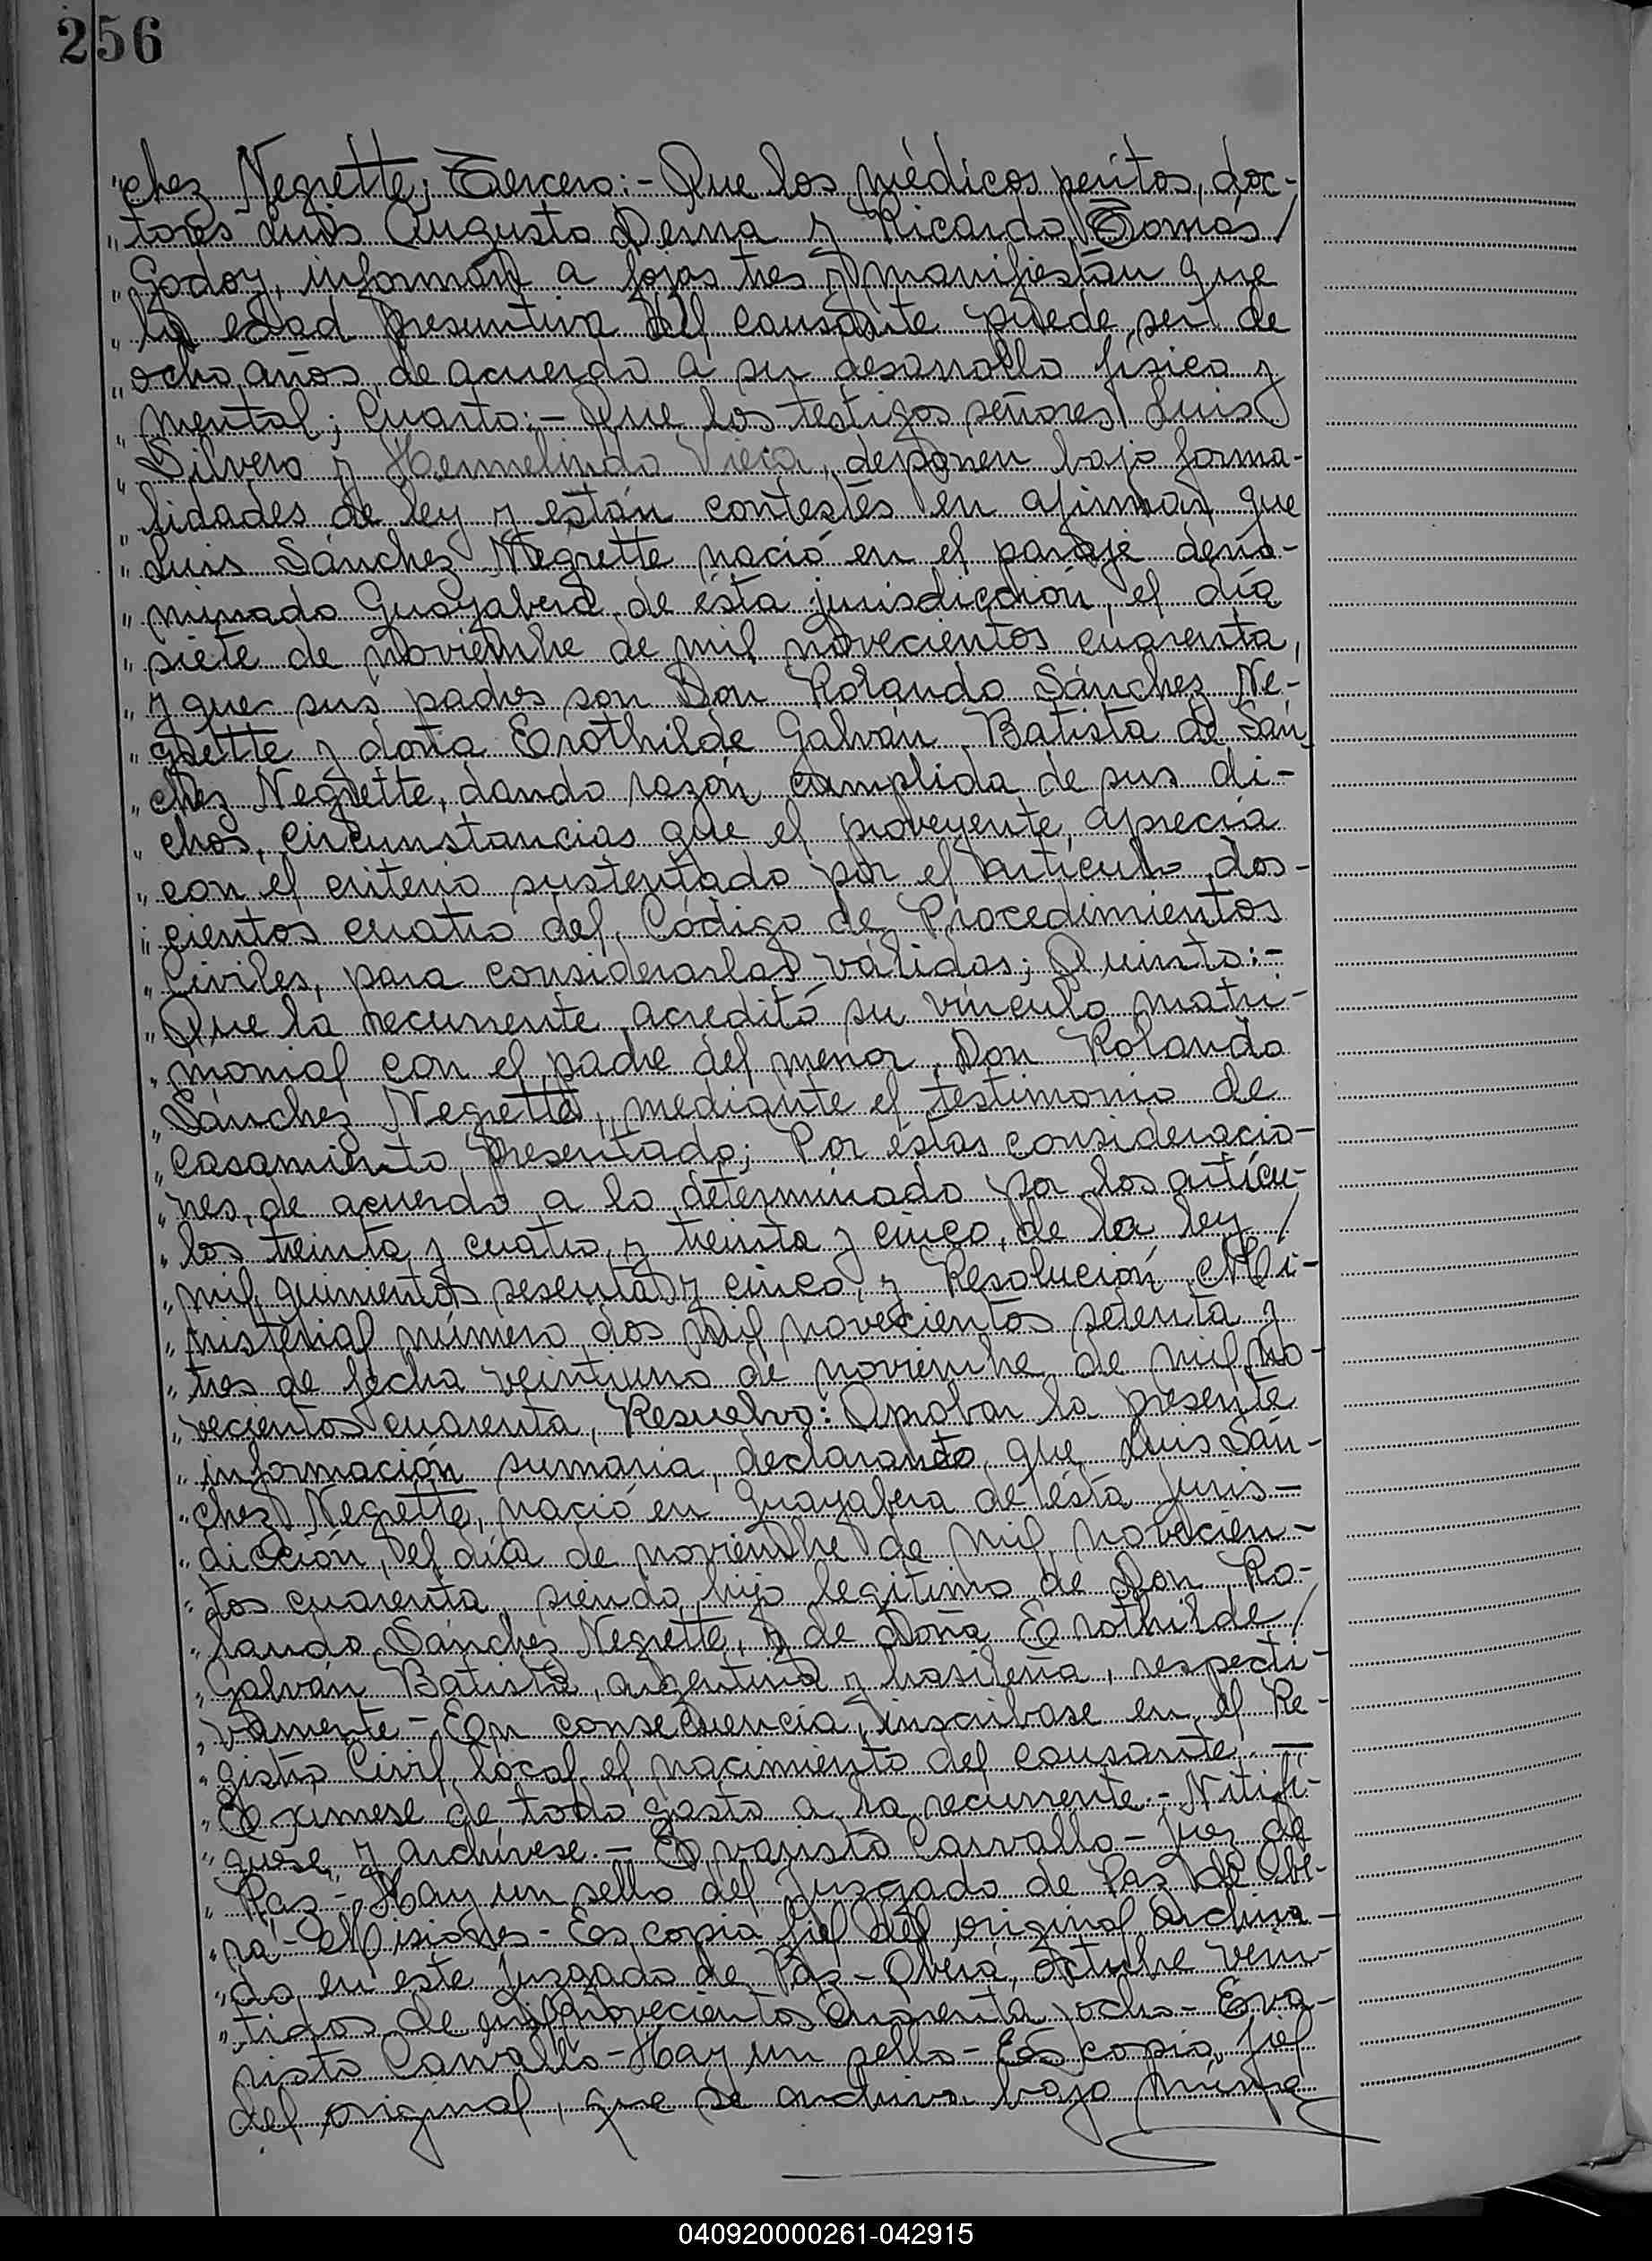 256
"chez Negrette; Tercero:- Que los médicos peritos, doc-
"tores Luis Augusto Derna y Ricardo Tomás/
"Godoy, informan a fojas tres y manifiestan que
"la edad presuntiva del causante puede ser de
"ocho años, de acuerdo a su desarrollo físico y
"mental; Cuarto:- Que los testigos señores Luis
"Silvero y Hermelindo Viera, deponen bajo forma-
"lidades de ley y están contestes en afirmar que
"Luis Sánchez Negrette nació en el paraje deno-
"minado Guayabera de ésta jurisdicción, el día
"siete de noviembre de mil novecientos cuarenta,
"y que sus padres son Don Rolando Sánchez Ne-
"grette y doña Erothilde Galván Batista de Sán-
"chez Negrette, dando razón cumplida de sus di-
"chos, circunstancias que el proveyente aprecia
"con el criterio sustentado por el artículo dos-
"cientos cuatro del Código de Procedimientos
"Civiles, para considerarlas válidas; Quinto:-
"Que la recurrente acreditó su vínculo matri-
"monial con el padre del menor, Don Rolando
"Sánchez Negrette, mediante el testimonio de
"casamiento presentado; Por éstas consideracio-
"nes, de acuerdo a lo determinado por los artícu-
"los treinta y cuatro y treinta y cinco, de la ley /
"mil quinientos sesenta y cinco, y Resolución Mi-
"nisterial número dos mil novecientos setenta y
"tres de fecha veintiuno de noviembre de mil no-
"vecientos cuarenta, Resuelvo: Aprobar la presente
"información sumaria, declarando que Luis Sán-
"chez Negrette, nació en Guayabera de ésta juris-
"dicción, el día de noviembre de mil novecien-
"tos cuarenta, siendo hijo legítimo de Don Ro-
"lando Sánchez Negrette, y de Doña Erothilde /
"Galván Batista, argentino y brasileña, respecti-
"vamente - En consecuencia, inscribase en el Re-
"gistro Civil local el nacimiento del causante. -
"Exímese de todo gasto a la recurrente.- Notifí-
"quese y archívese. - Evaristo Carvallo - Juez de
"Paz - Hay un sello del Juzgado de Paz de Obe-
"rá - Misiones - Es copia fiel del original archiva-
"do en este Juzgado de Paz - Oberá, octubre vein-
"tidos de mil novecientos cuarenta y ocho - Eva-
risto Carvallo - Hay un sello - Es copia fiel
del original, que se archiva bajo núme
040920000261-042915